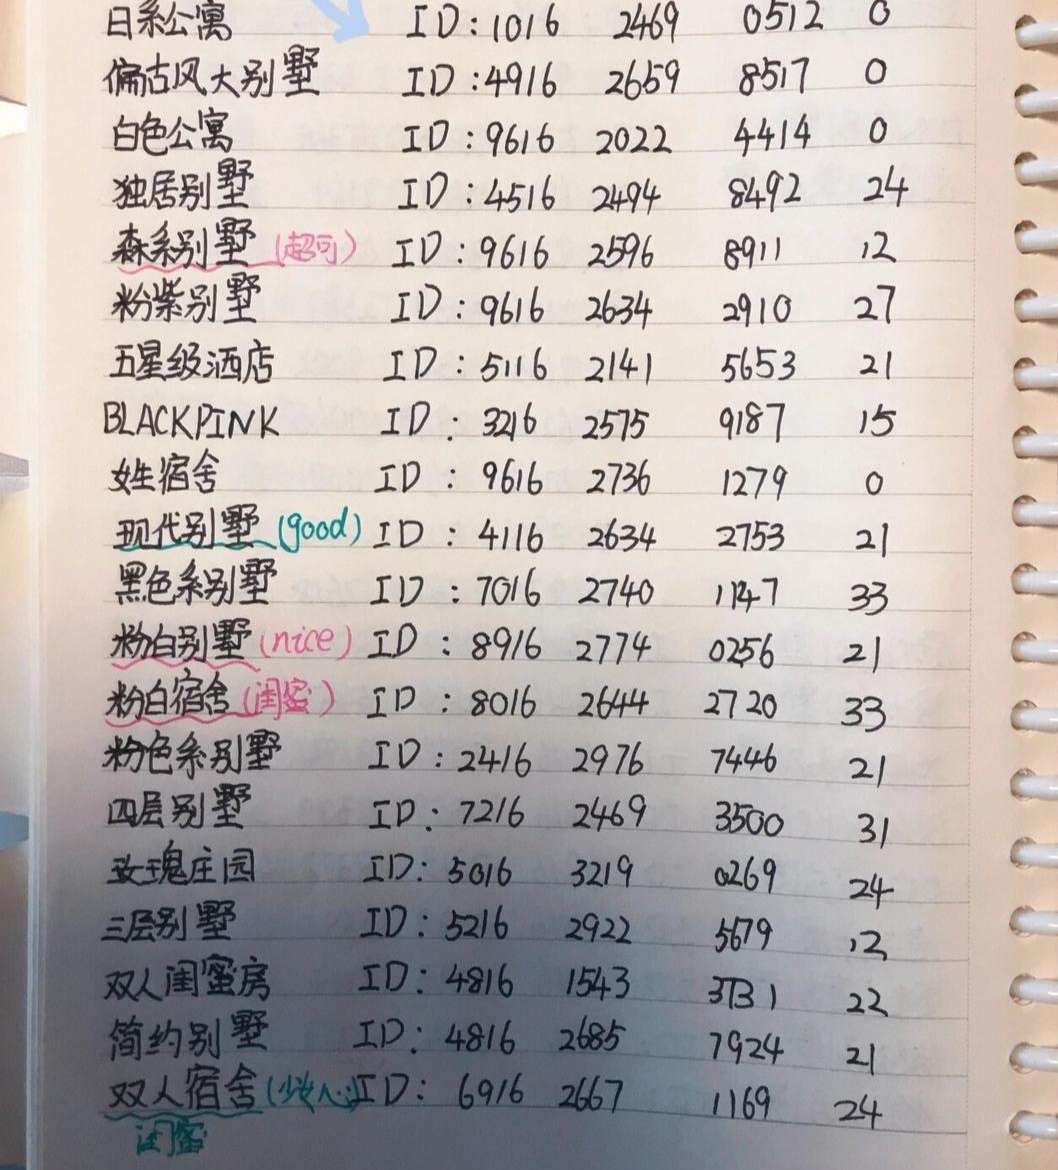 日系公寓 ID:1016 2469 0512 0
偏古风大别墅 ID:4916 2659 8517 0
白色公寓 ID:9616 2022 4414 0
独居别墅 ID:4516 2494 8492 24
森系别墅(超可) ID:9616 2596 8911 12
粉紫别墅 ID:9616 2634 2910 27
五星级酒店 ID:5116 2141 5653 21
BLACKPINK ID: 3216 2575 9187 15
女生宿舍 ID: 9616 2736 1279 0
现代别墅(good) ID: 4116 2634 2753 21
黑色系别墅 ID:7016 2740 1147 33
粉白别墅(nice) ID: 8916 2774 0256 21
粉白宿舍(闺蜜) ID: 8016 2644 2720 33
粉色系别墅 ID:2416 2976 7446 21
四层别墅 ID:7216 2469 3500 31
玫瑰庄园 ID:5016 3219 0269 24
三层别墅 ID:5216 2922 5679 12
双人闺蜜房 ID:4816 1543 22
简约别墅 ID:4816 2685 7924 21
双人宿舍(少女心)ID: 6916 2667 1169 24
闺蜜